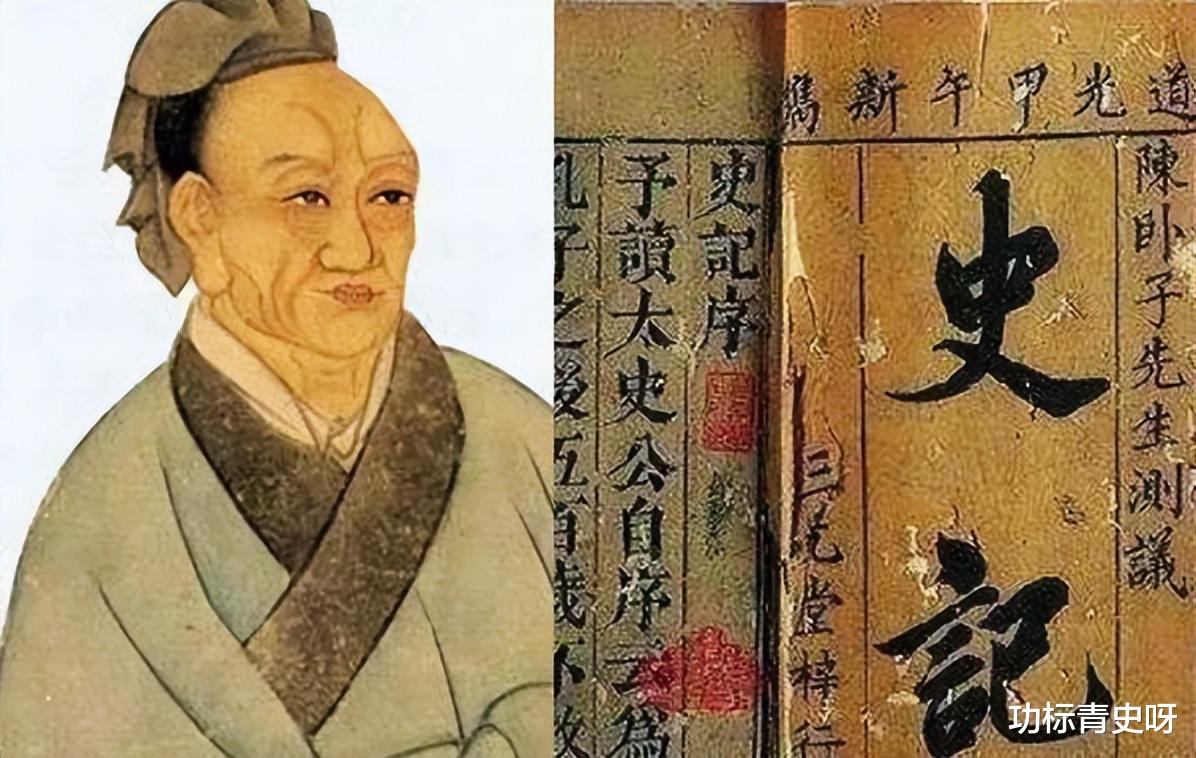 道光甲午新鐫
陳卧子先生測議
史記
三 堂梓行
史記序
予讀太史公自序云為
孔子之後五百歲不敢
功标青史呀